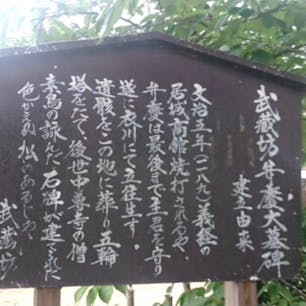 武蔵坊弁慶大墓碑
建立由来
文治五年(一一八九)義経の
居城高館焼打されるや
弁慶は最後まで主君を守り
遂に衣川にて立往生す
遺骸をこの地に葬り五輪
塔をたて後世中尊寺の僧
素鳥の詠んだ石碑が建てられた
色かえぬ松のあるじや
武蔵坊